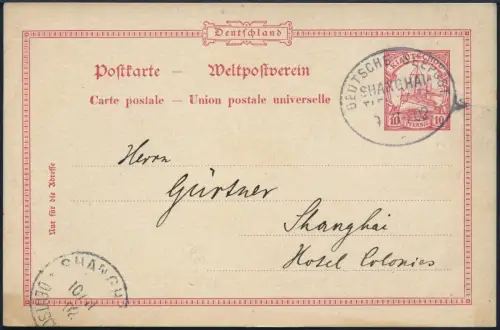 Deutschland
Postkarte — Weltpostverein
Carte postale — Union postale universelle
DEUTSCHE SEEPOST
SHANGHAI
KIAUTSCHOU
10 PFENNIG 10
Herrn
Gürtner
Shanghai
Hotel Colonies
Nur für die Adresse
SHANGH